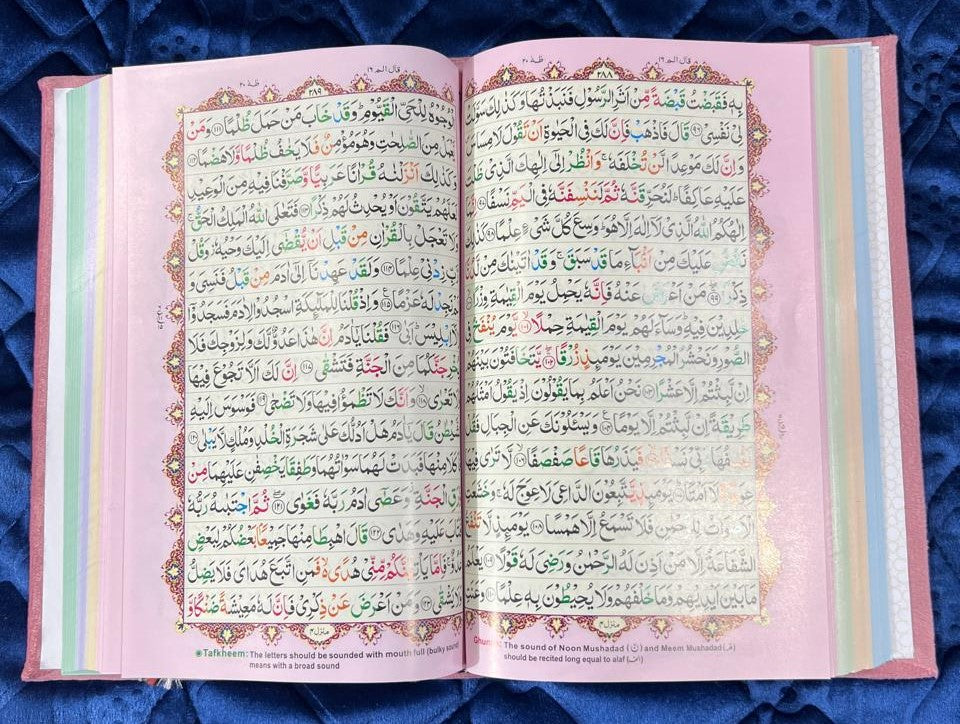 قال الم ١٦ ٢٨٨ طٰهٰ ٢٠
بِهٖ فَقَبَضْتُ قَبْضَةً مِّنْ اَثَرِ الرَّسُوْلِ فَنَبَذْتُهَا وَكَذٰلِكَ
لِيْ نَفْسِيْ ﴿٩٦﴾ قَالَ فَاذْهَبْ فَاِنَّ لَكَ فِي الْحَيٰوةِ اَنْ تَقُوْلَ لَا مِسَاسَ
وَاِنَّ لَكَ مَوْعِدًا لَّنْ تُخْلَفَهٗ ۚ وَانْظُرْ اِلٰٓى اِلٰهِكَ الَّذِيْ
عَلَيْهِ عَاكِفًا ؕ لَنُحَرِّقَنَّهٗ ثُمَّ لَنَنْسِفَنَّهٗ فِي الْيَمِّ نَسْفًا ﴿٩٧﴾
اِلٰهُكُمُ اللّٰهُ الَّذِيْ لَآ اِلٰهَ اِلَّا هُوَ ؕ وَسِعَ كُلَّ شَيْءٍ عِلْمًا ﴿٩٨﴾
عَلَيْكَ مِنْ اَنْۢبَآءِ مَا قَدْ سَبَقَ ۚ وَقَدْ اٰتَيْنٰكَ مِنْ
ذِكْرًا ﴿٩٩﴾ مَنْ اَعْرَضَ عَنْهُ فَاِنَّهٗ يَحْمِلُ يَوْمَ الْقِيٰمَةِ وِزْرًا
خٰلِدِيْنَ فِيْهِ ؕ وَسَآءَ لَهُمْ يَوْمَ الْقِيٰمَةِ حِمْلًا ﴿١٠١﴾ يَّوْمَ يُنْفَخُ
الصُّوْرِ وَنَحْشُرُ الْمُجْرِمِيْنَ يَوْمَئِذٍ زُرْقًا ﴿١٠٢﴾ يَّتَخَافَتُوْنَ بَيْنَهُمْ
اِنْ لَّبِثْتُمْ اِلَّا عَشْرًا ﴿١٠٣﴾ نَحْنُ اَعْلَمُ بِمَا يَقُوْلُوْنَ اِذْ يَقُوْلُ اَمْثَلُهُمْ
طَرِيْقَةً اِنْ لَّبِثْتُمْ اِلَّا يَوْمًا ﴿١٠٤﴾ وَيَسْئَلُوْنَكَ عَنِ الْجِبَالِ فَقُلْ
فَيَذَرُهَا قَاعًا صَفْصَفًا ﴿١٠٦﴾ لَّا تَرٰى
عِوَجًا وَّلَآ اَمْتًا ﴿١٠٧﴾ يَوْمَئِذٍ يَّتَّبِعُوْنَ الدَّاعِيَ لَا عِوَجَ لَهٗ ۚ وَخَشَعَتِ
الْاَصْوَاتُ لِلرَّحْمٰنِ فَلَا تَسْمَعُ اِلَّا هَمْسًا ﴿١٠٨﴾ يَوْمَئِذٍ لَّا تَنْفَعُ
الشَّفَاعَةُ اِلَّا مَنْ اَذِنَ لَهُ الرَّحْمٰنُ وَرَضِيَ لَهٗ قَوْلًا ﴿١٠٩﴾
مَا بَيْنَ اَيْدِيْهِمْ وَمَا خَلْفَهُمْ وَلَا يُحِيْطُوْنَ بِهٖ عِلْمًا ﴿١١٠﴾
منزل ٤
The sound of Noon Mushadad (نّ) and Meem Mushadad (مّ)
should be recited long equal to alaf (الف)
قال الم ١٦ ٢٨٩ طٰهٰ ٢٠
الْوُجُوْهُ لِلْحَيِّ الْقَيُّوْمِ ؕ وَقَدْ خَابَ مَنْ حَمَلَ ظُلْمًا ﴿١١١﴾ وَمَنْ
يَّعْمَلْ مِنَ الصّٰلِحٰتِ وَهُوَ مُؤْمِنٌ فَلَا يَخٰفُ ظُلْمًا وَّلَا هَضْمًا ﴿١١٢﴾
وَكَذٰلِكَ اَنْزَلْنٰهُ قُرْاٰنًا عَرَبِيًّا وَّصَرَّفْنَا فِيْهِ مِنَ الْوَعِيْدِ
لَعَلَّهُمْ يَتَّقُوْنَ اَوْ يُحْدِثُ لَهُمْ ذِكْرًا ﴿١١٣﴾ فَتَعٰلَى اللّٰهُ الْمَلِكُ الْحَقُّ ۚ
وَلَا تَعْجَلْ بِالْقُرْاٰنِ مِنْ قَبْلِ اَنْ يُّقْضٰٓى اِلَيْكَ وَحْيُهٗ ؗ وَقُلْ
رَّبِّ زِدْنِيْ عِلْمًا ﴿١١٤﴾ وَلَقَدْ عَهِدْنَآ اِلٰٓى اٰدَمَ مِنْ قَبْلُ فَنَسِيَ وَ
لَمْ نَجِدْ لَهٗ عَزْمًا ﴿١١٥﴾ وَاِذْ قُلْنَا لِلْمَلٰٓئِكَةِ اسْجُدُوْا لِاٰدَمَ فَسَجَدُوْٓا
اِلَّآ اِبْلِيْسَ ؕ اَبٰى ﴿١١٦﴾ فَقُلْنَا يٰٓاٰدَمُ اِنَّ هٰذَا عَدُوٌّ لَّكَ وَلِزَوْجِكَ فَلَا
يُخْرِجَنَّكُمَا مِنَ الْجَنَّةِ فَتَشْقٰى ﴿١١٧﴾ اِنَّ لَكَ اَلَّا تَجُوْعَ فِيْهَا
وَلَا تَعْرٰى ﴿١١٨﴾ وَاَنَّكَ لَا تَظْمَؤُا فِيْهَا وَلَا تَضْحٰى ﴿١١٩﴾ فَوَسْوَسَ اِلَيْهِ
الشَّيْطٰنُ قَالَ يٰٓاٰدَمُ هَلْ اَدُلُّكَ عَلٰى شَجَرَةِ الْخُلْدِ وَمُلْكٍ لَّا يَبْلٰى ﴿١٢٠﴾
فَاَكَلَا مِنْهَا فَبَدَتْ لَهُمَا سَوْاٰتُهُمَا وَطَفِقَا يَخْصِفٰنِ عَلَيْهِمَا مِنْ
وَّرَقِ الْجَنَّةِ ؗ وَعَصٰٓى اٰدَمُ رَبَّهٗ فَغَوٰى ﴿١٢١﴾ ثُمَّ اجْتَبٰهُ رَبُّهٗ
فَتَابَ عَلَيْهِ وَهَدٰى ﴿١٢٢﴾ قَالَ اهْبِطَا مِنْهَا جَمِيْعًۢا بَعْضُكُمْ لِبَعْضٍ
عَدُوٌّ ۚ فَاِمَّا يَاْتِيَنَّكُمْ مِّنِّيْ هُدًى ۙ فَمَنِ اتَّبَعَ هُدَايَ فَلَا يَضِلُّ
وَلَا يَشْقٰى ﴿١٢٣﴾ وَمَنْ اَعْرَضَ عَنْ ذِكْرِيْ فَاِنَّ لَهٗ مَعِيْشَةً ضَنْكًا وَّ
منزل ٤
Tafkheem: The letters should be sounded with mouth full (bulky sound
means with a broad sound